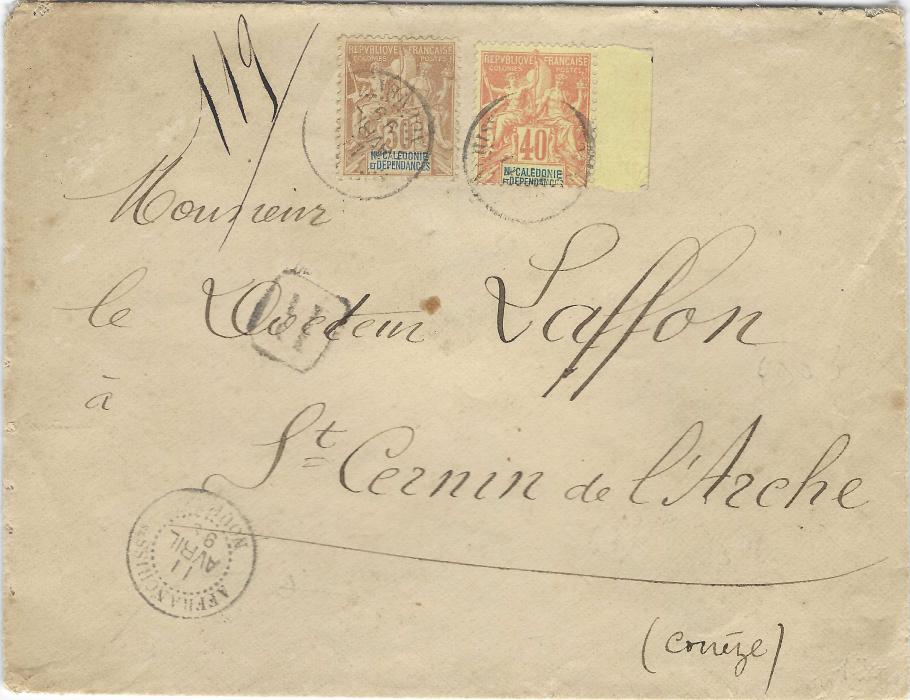 119
REPUBLIQUE FRANÇAISE
COLONIES POSTES
50
Nlle CALÉDONIE
ET DÉPENDANCES
REPUBLIQUE FRANÇAISE
COLONIES POSTES
40
Nlle CALÉDONIE
ET DÉPENDANCES
Monsieur
le Docteur Laffon
à
St Cernin de l'Arche
(Corrèze)
11
AVRIL